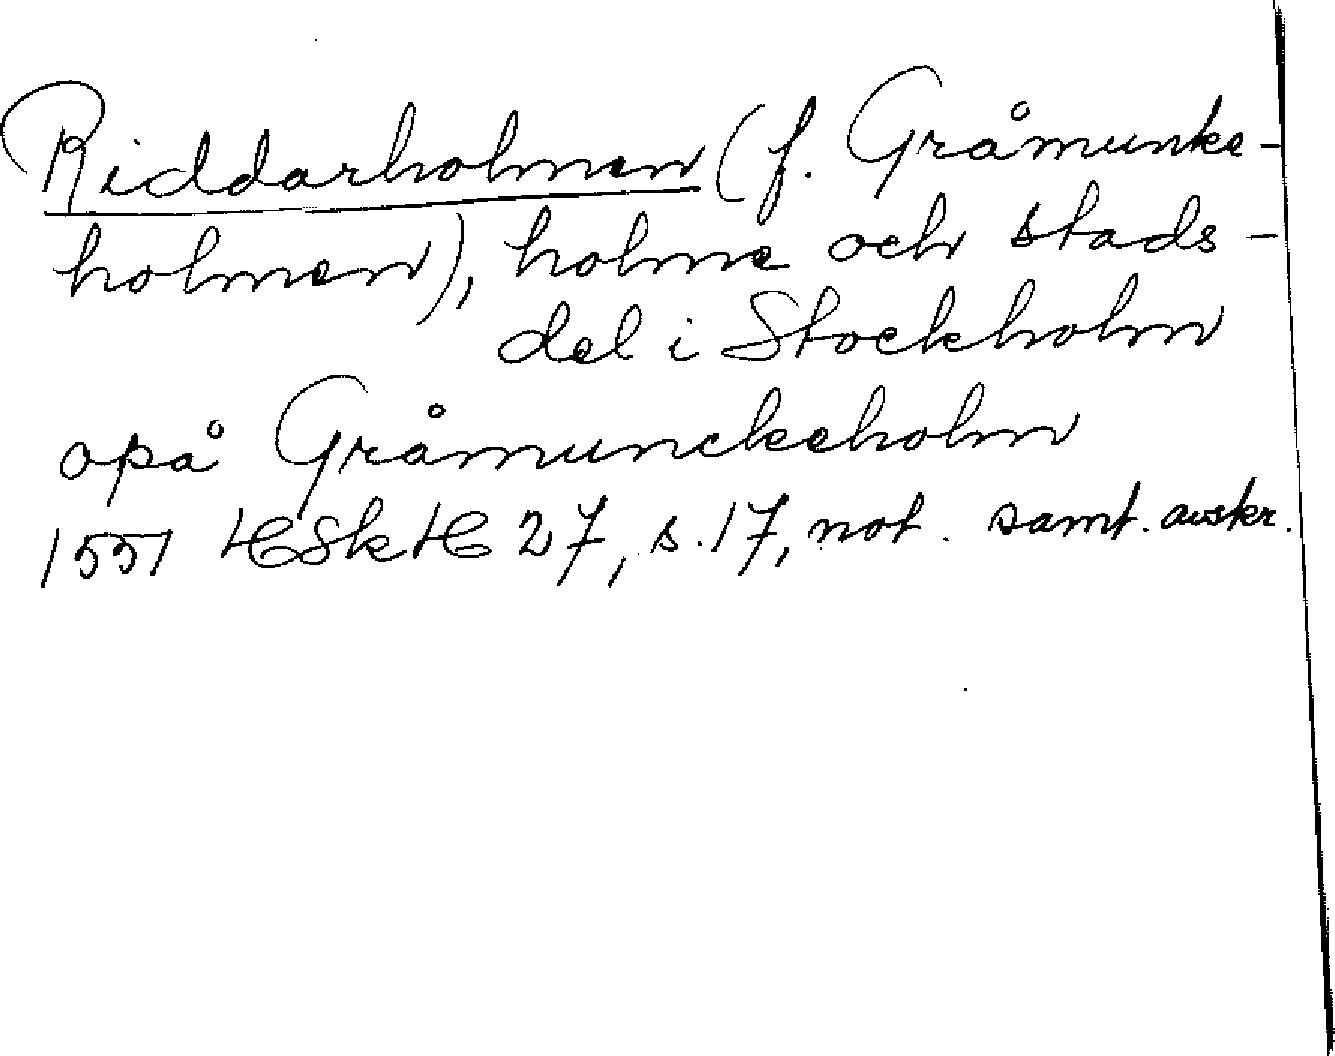 Riddarholmen (f. Gråmunke-
holmen), holme och stads-
del i Stockholm
opå Gråmunckeholm
1551 HSkH 27, s. 17, not. samt. avskr.